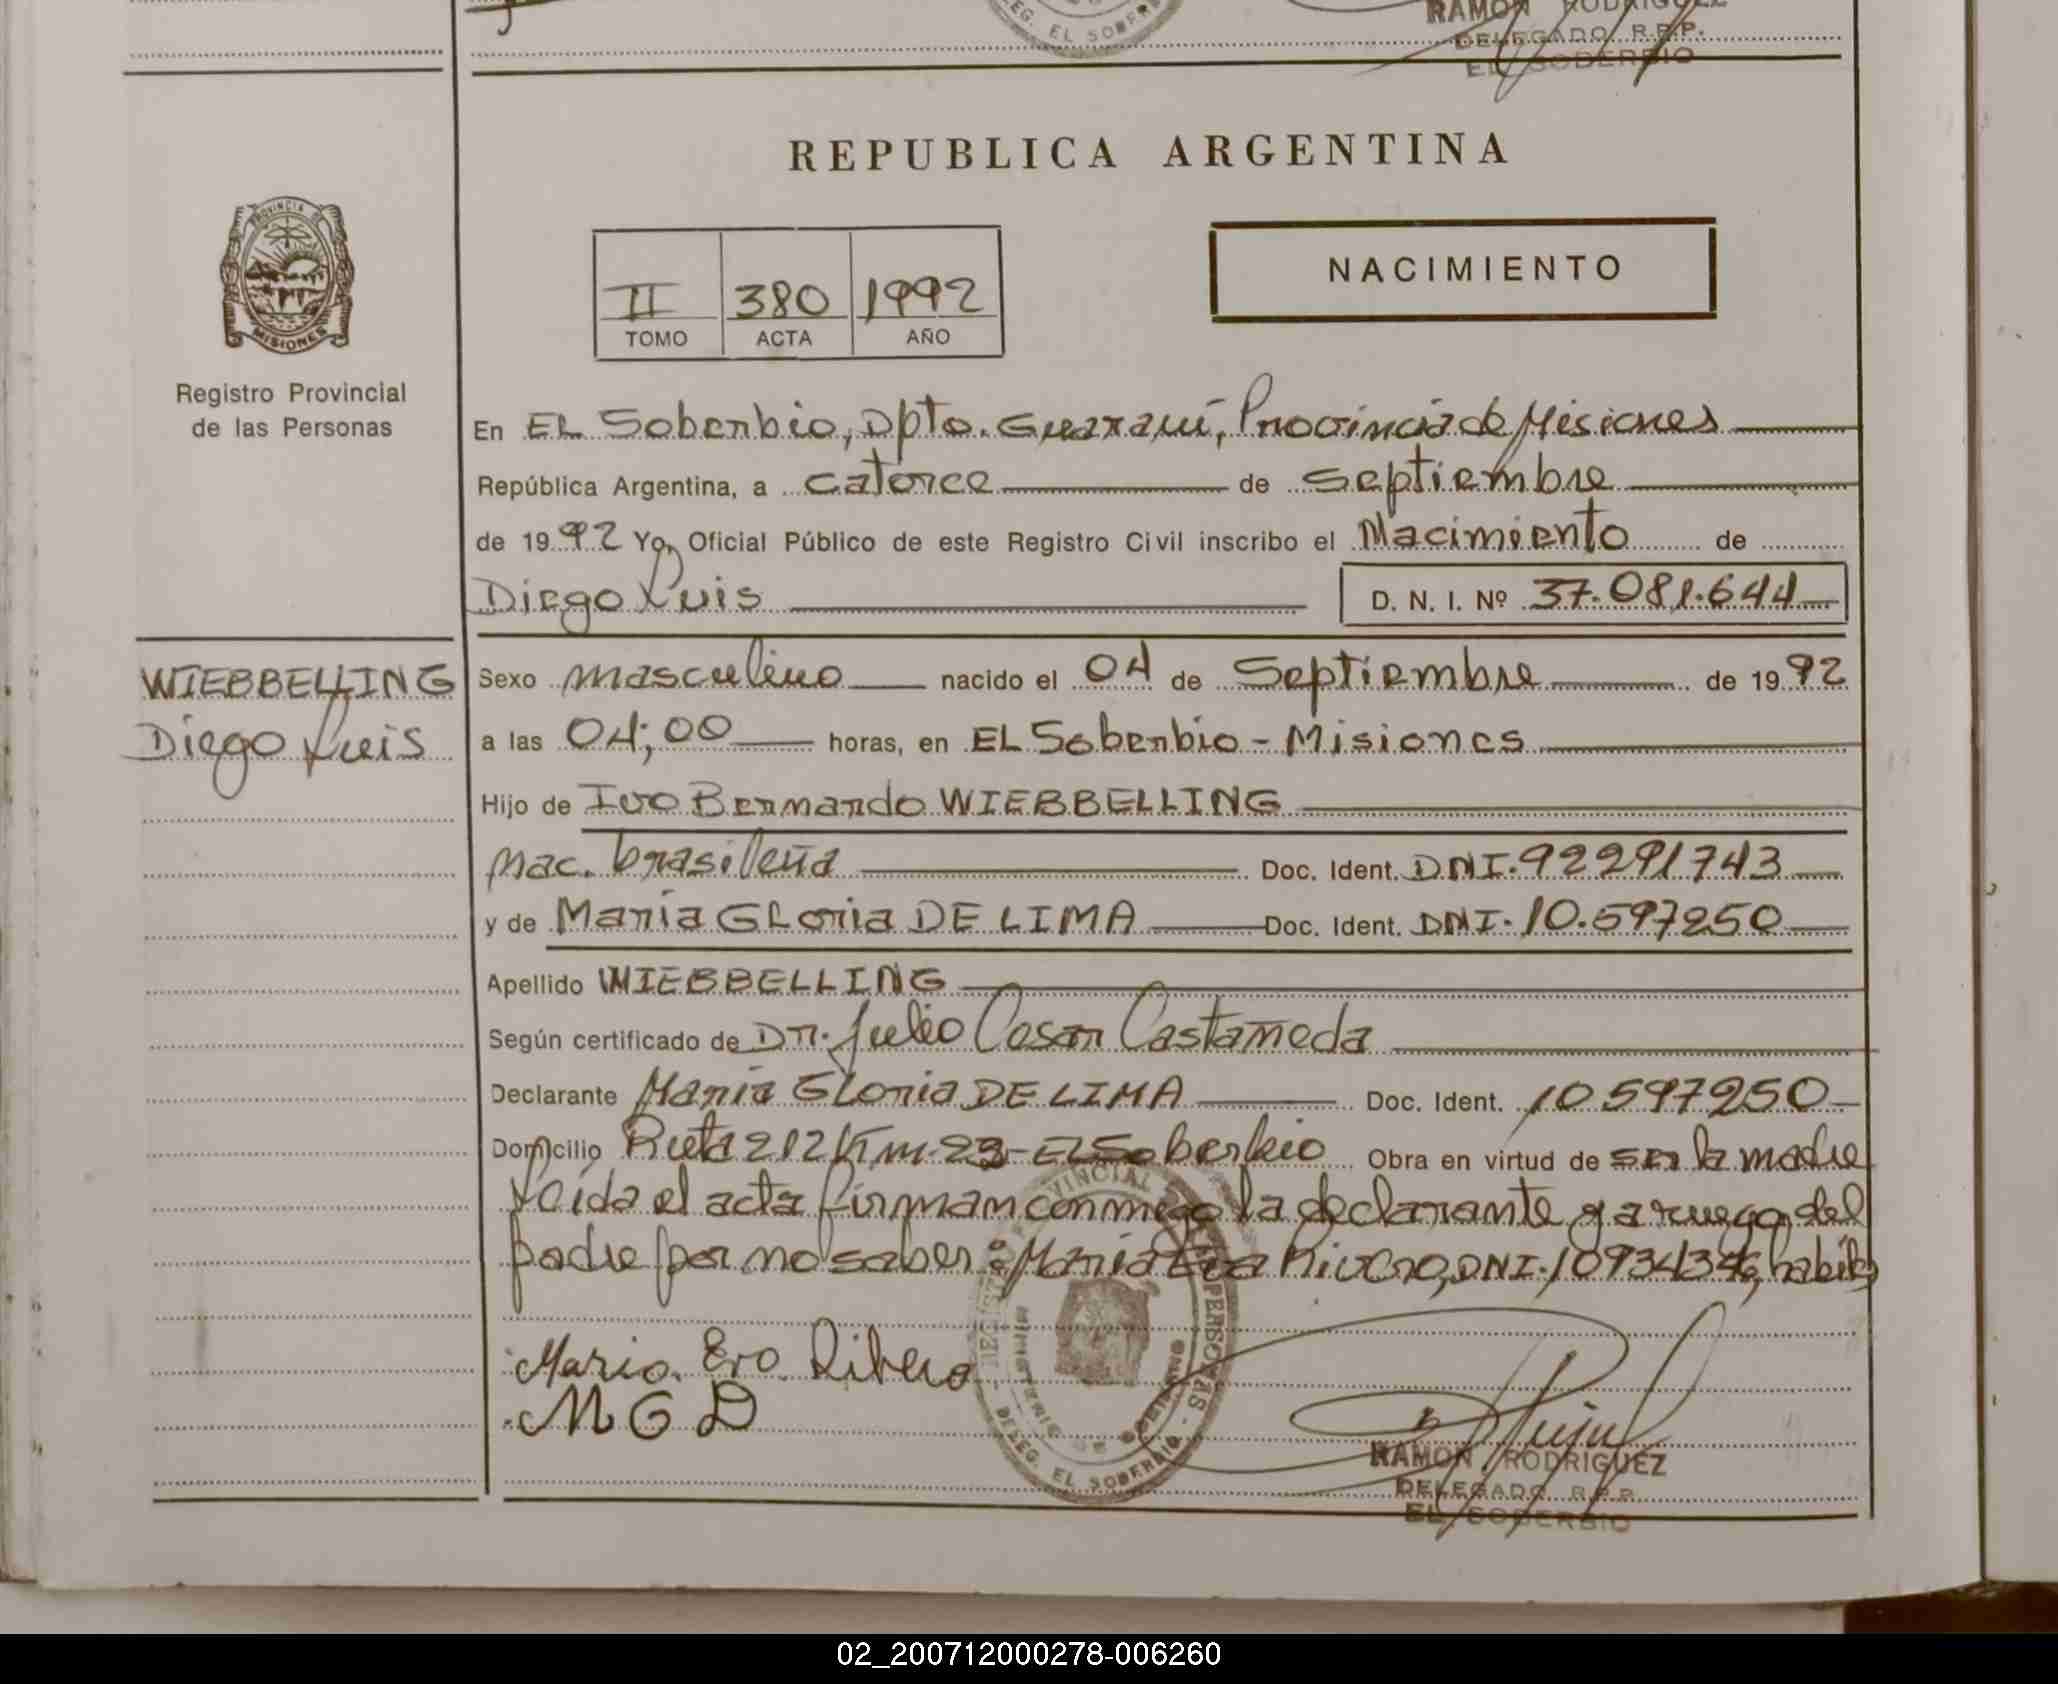 LEG. EL SOBER
RAMON RODRIGUEZ
DELEGADO R.P.P.
EL SOBERBIO
REPUBLICA ARGENTINA
PROVINCIA DE
MISIONES
Registro Provincial
de las Personas
II 380 1992
TOMO ACTA AÑO
NACIMIENTO
En EL Soberbio, Dpto. Guaraní, Provincia de Misiones
República Argentina, a catorce de Septiembre
de 1992 Yo, Oficial Público de este Registro Civil inscribo el Nacimiento de
Diego Luis D. N. I. Nº 37.081.644
WIEBBELLING
Diego Luis
Sexo masculino nacido el 04 de Septiembre de 1992
a las 04;00 horas, en EL Soberbio - Misiones
Hijo de Ivo Bernardo WIEBBELLING
nac. brasileña Doc. Ident. DNI. 92291743
y de Maria GLoria DE LIMA Doc. Ident. DNI. 10.597250
Apellido WIEBBELLING
Según certificado de Dr. Julio Cesar Castañeda
Declarante Maria GLoria DE LIMA Doc. Ident. 10597250
Domicilio Ruta 212 Km. 23 - EL Soberbio Obra en virtud de ser la madre
Leída el acta firman conmigo la declarante y a ruego del
padre por no saber: Maria Eva Rivero, DNI. 10934346, habil
Maria Eva Ribero
M G D
REGISTRO PROVINCIAL PERSONAS
MINISTERIO DE GOBIERNO
DELEG. EL SOBERBIO
RAMON RODRIGUEZ
DELEGADO R.P.P.
EL SOBERBIO
02_200712000278-006260